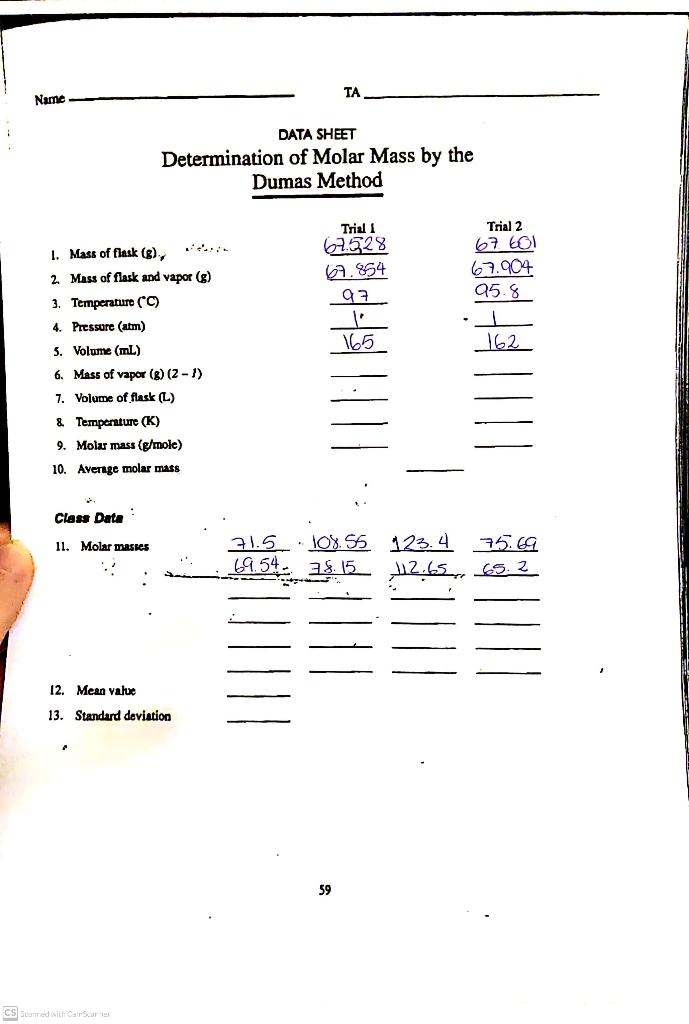 Name TA
DATA SHEET
Determination of Molar Mass by the
Dumas Method
Trial 1 Trial 2
1. Mass of flask (g) 67.528 67 601
2. Mass of flask and vapor (g) 67.854 67.904
3. Temperature (°C) 97 95.8
4. Pressure (atm) 1 1
5. Volume (mL) 165 162
6. Mass of vapor (g) (2 – 1)
7. Volume of flask (L)
8. Temperature (K)
9. Molar mass (g/mole)
10. Average molar mass
Class Data
11. Molar masses 71.5 108.55 123.4 75.69
69.54 78.15 112.65 65.2
12. Mean value
13. Standard deviation
59
CS Scanned with CamScanner